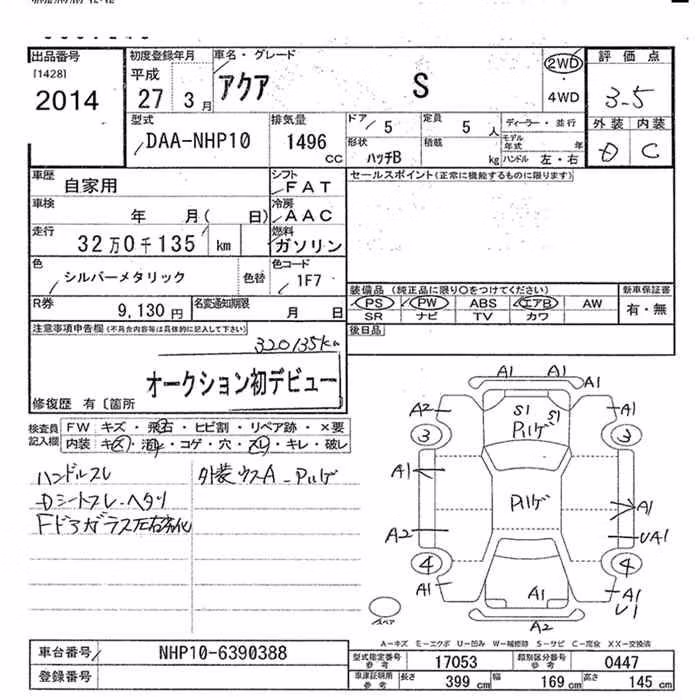 出品番号 初度登録年月 車名・グレード 評価点
[1428] 平成 アクア S 2WD 3.5
2014 27 3月 4WD 外装 内装
型式 排気量 ドア 定員 ディーラー・並行 D C
DAA-NHP10 1496 CC 5 5人 モデル年式 年
形状 積載 ハンドル 左・右
ハッチB kg
車歴 シフト セールスポイント(正常に機能するものに限ります)
自家用 FAT
車検 冷房
年 月( 日) AAC
走行 燃料
32万0千135 km ガソリン
色 色替 色コード
シルバーメタリック 1F7
装備品 (純正品に限り〇をつけてください) 新車保証書
R券 名変通知期限 PS PW ABS エアB AW 有・無
9,130円 月 日 SR ナビ TV カワ
注意事項申告欄(不具合内容等は具体的に記入して下さい) 後日品
320135km
オークション初デビュー
修復歴 有〔箇所
検査員 FW キズ・飛石・ヒビ割・リペア跡・×要
記入欄 内装 キズ・汚れ・コゲ・穴・スレ・キレ・破レ
ハンドルスレ 外装ウスA-Pハゲ
Dシートスレ・ヘタリ
Fドアガラス左右劣化
A1 A1 A1
A2 S1 S1 A1
3 Pハゲ 3
A1 Pハゲ A1
A2 UA1
4 4
A1 A1 A1
U1
スペア A2
A-キズ E-エクボ U-凹み W-補修跡 S-サビ C-腐食 XX-交換済
車台番号 NHP10-6390388 型式指定番号 参考 17053 類別区分番号 参考 0447
登録番号 車庫証明用 参考 長さ 399 cm 幅 169 cm 高さ 145 cm